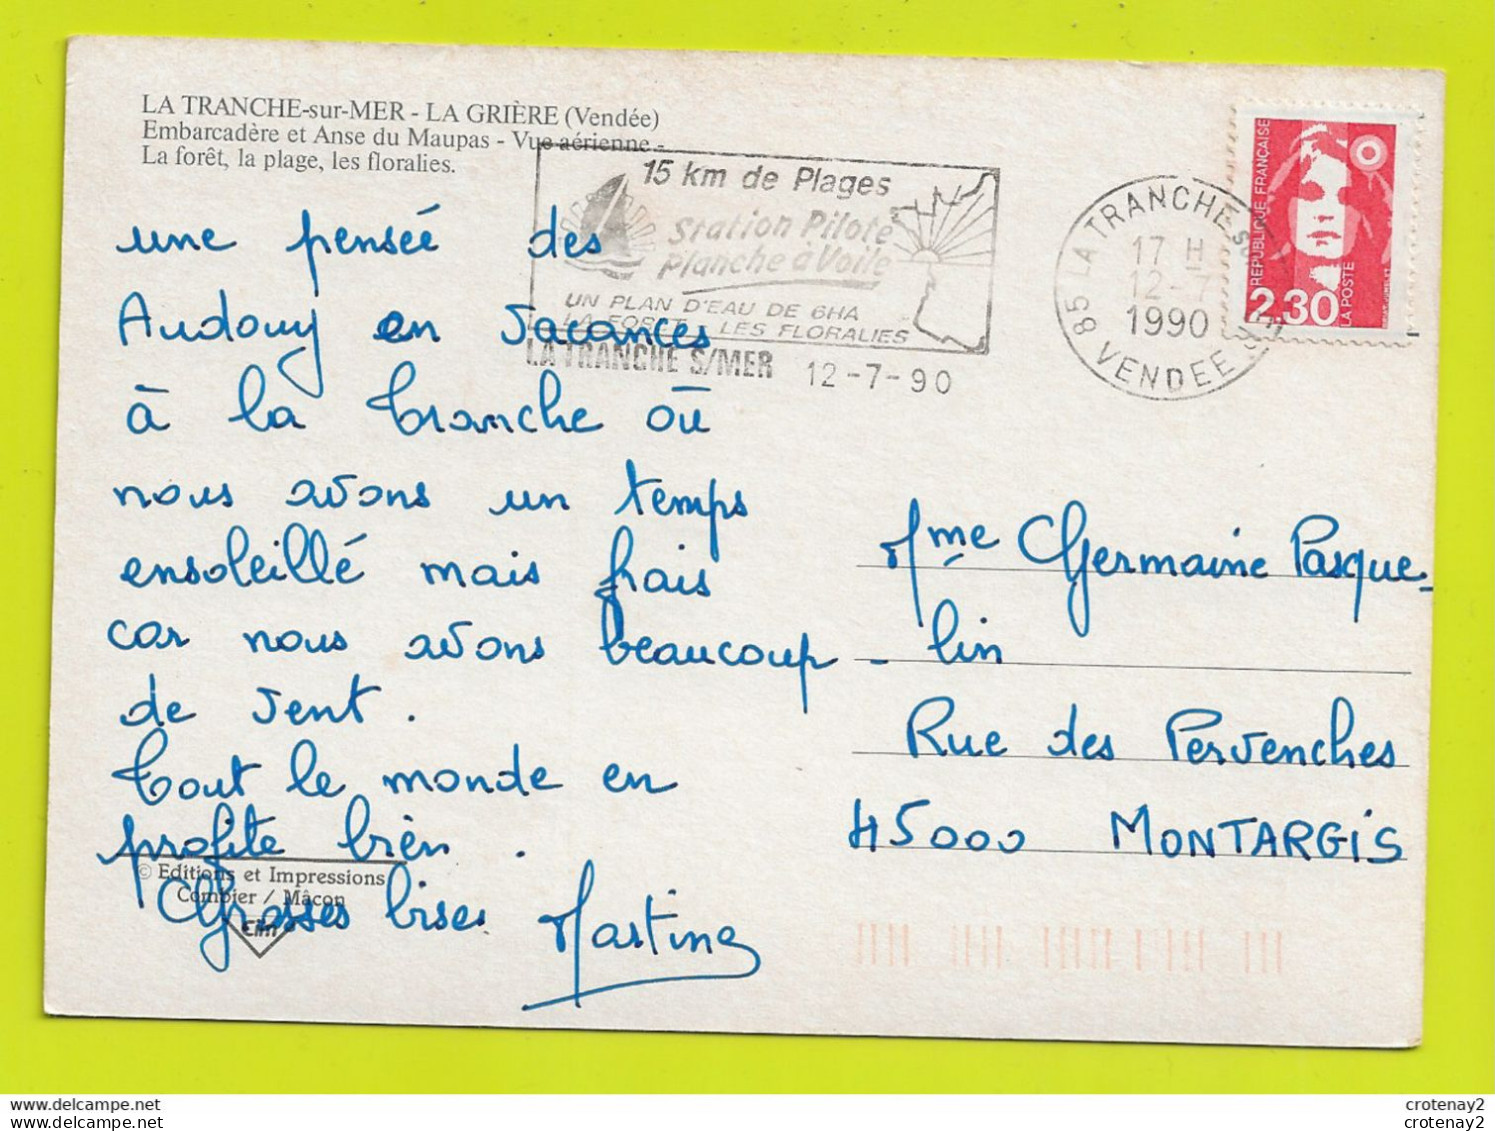 LA TRANCHE-sur-MER - LA GRIÈRE (Vendée)
Embarcadère et Anse du Maupas - Vue aérienne -
La forêt, la plage, les floralies.
15 km de Plages
Station Pilote
Planche à Voile
UN PLAN D'EAU DE 6HA
LA FORET LES FLORALIES
LA TRANCHE S/MER 12-7-90
85 LA TRANCHE S
17 H
12-7
1990
VENDEE
REPUBLIQUE FRANÇAISE
2,30
LA POSTE
une penseé des
Audouy en Vacances
à la Tranche où
nous avons un temps
ensoleillé mais frais
car nous avons beaucoup
de vent.
Tout le monde en
profite bièn.
Grosses bises Martine
Mme Germaine Pasque-
- lin
Rue des Pervenches
45000 MONTARGIS
© Editions et Impressions
Combier / Mâcon
Cim
delcampe.net
delcampe.net
crotenay2
crotenay2